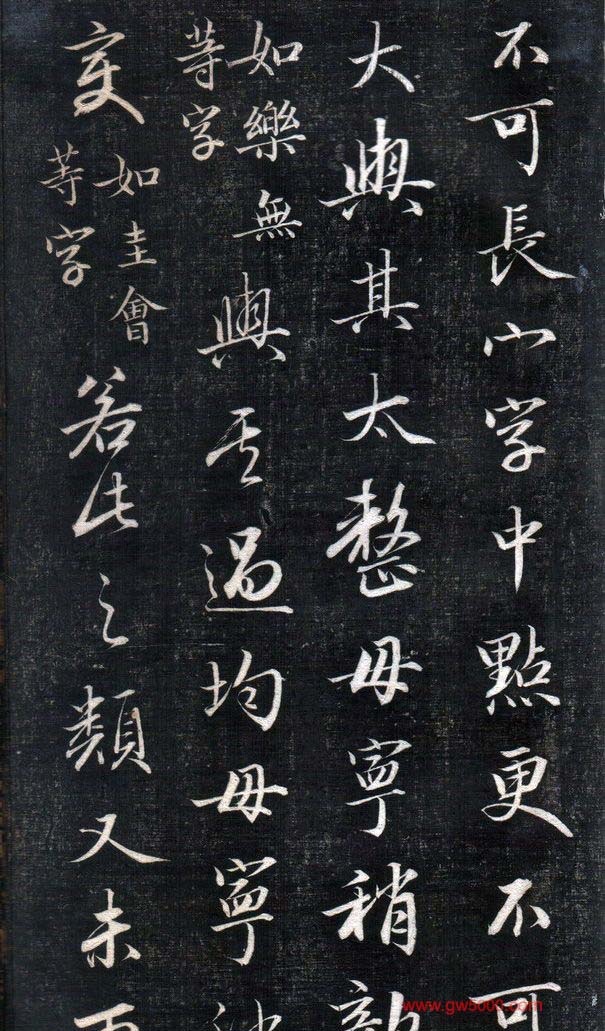 不可長宀字中點更不可
大與其太整毋寧稍
如樂無
等字
與其過均毋寧
如圭會
等字
若此之類又未
www.gw5000.com